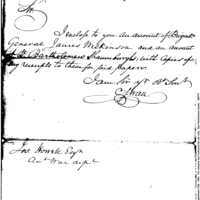 Sir
I inclose to you An amount of Brigadr
General James Wilkinson and an amount
of Bartholomew Shaumburgh, with Copies of
my receipts to them for said papers.
I am Sir yr Ob Sert
C Swan
Jos Howell Esqr
Act War dept